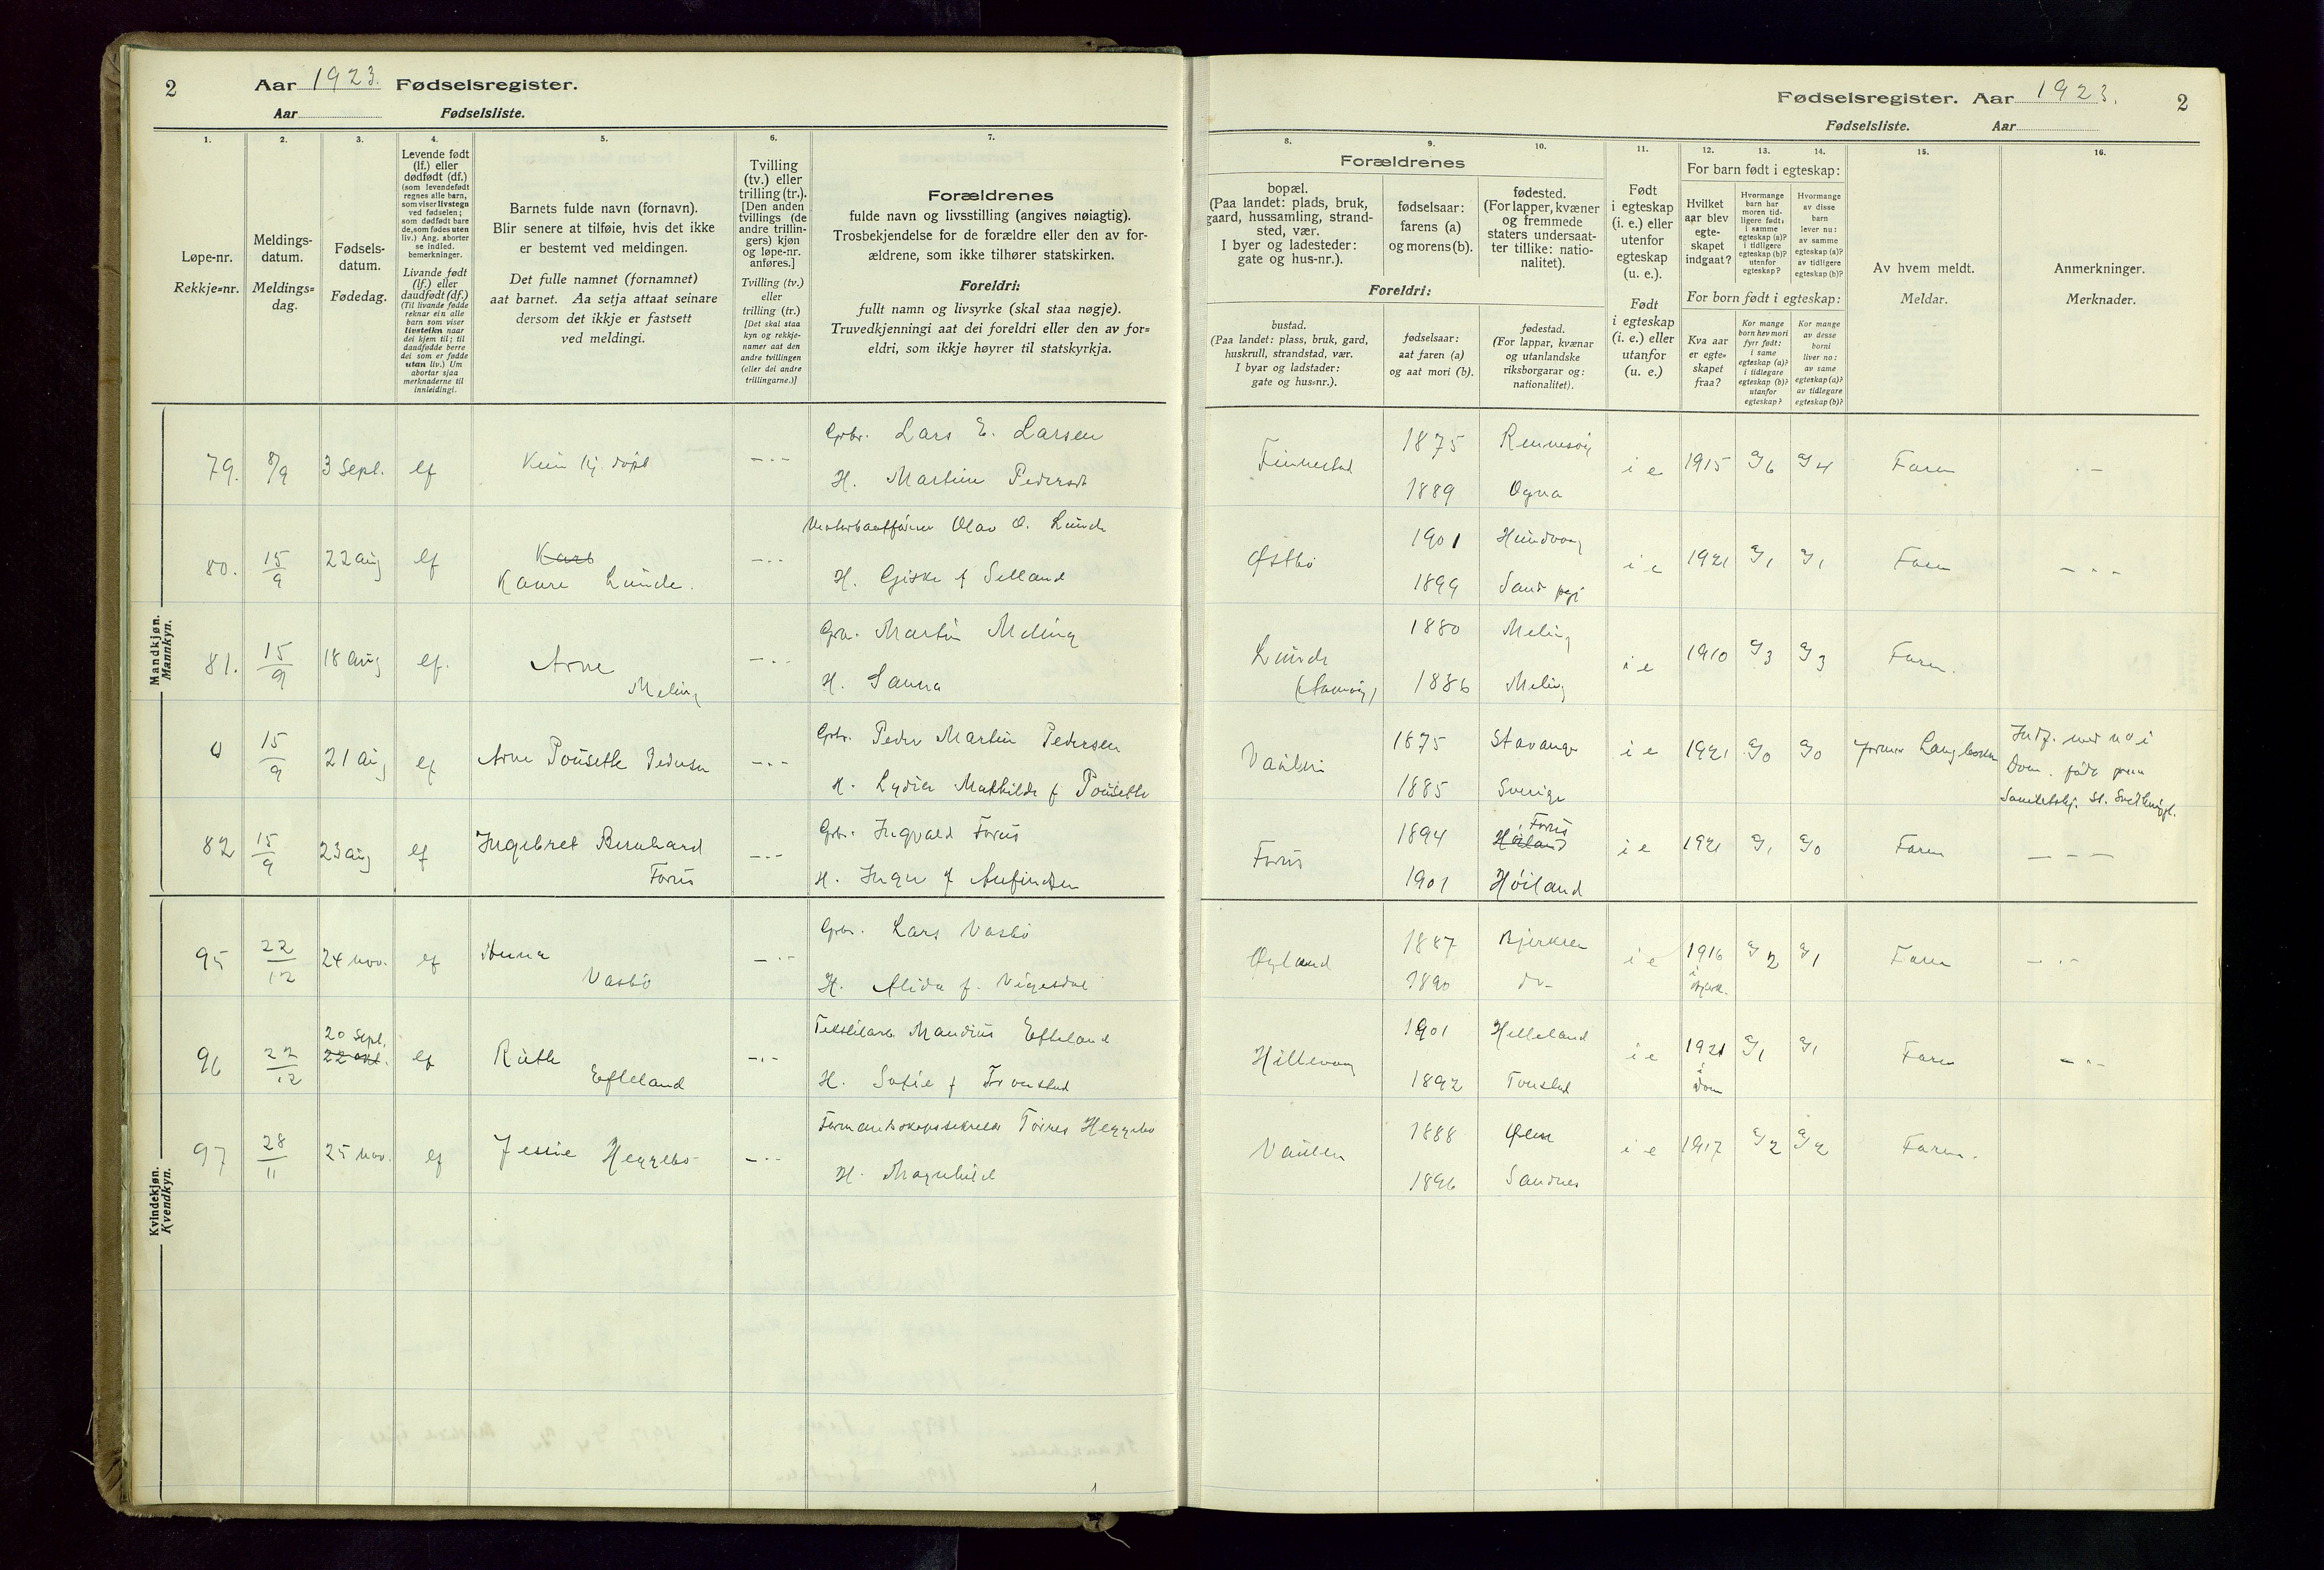 2
Aar 1923. Fødselsregister.
Aar Fødselsliste.
Fødselsregister. Aar 1923.
2
Fødselsliste. Aar
1. 2. 3. 4. 5. 6. 7.
Løpe-nr.
Rekkje=nr.
Meldings-
datum.
Meldings=
dag.
Fødsels-
datum.
Fødedag.
Levende født
(lf.) eller
dødfødt (df.)
(som levendefødt
regnes alle barn,
som viser livstegn
ved fødselen;
som dødfødt bare
de, som fødes uten
liv.) Ang. aborter
se indled.
bemerkninger.
Livande født
(lf.) eller
daudfødt (df.)
(Til livande fødde
reknar ein alle
born som viser
livsteikn naar
dei kjem til; til
daudfødde berre
dei som er fødde
utan liv.) Um
abortar sjaa
merknaderne til
innleidingi.
Barnets fulde navn (fornavn).
Blir senere at tilføie, hvis det ikke
er bestemt ved meldingen.
Det fulle namnet (fornamnet)
aat barnet. Aa setja attaat seinare
dersom det ikkje er fastsett
ved meldingi.
Tvilling
(tv.) eller
trilling (tr.).
[Den anden
tvillings (de
andre trillin-
gers) kjøn
og løpe-nr.
anføres.]
Tvilling (tv.)
eller
trilling (tr.)
[Det skal staa
kyn og rekkje-
numer aat den
andre tvillingen
(eller dei andre
trillingarne.)]
Forældrenes
fulde navn og livsstilling (angives nøiagtig).
Trosbekjendelse for de forældre eller den av for-
ældrene, som ikke tilhører statskirken.
Foreldri:
fullt namn og livsyrke (skal staa nøgje).
Truvedkjenningi aat dei foreldri eller den av for=
eldri, som ikkje høyrer til statskyrkja.
8. 9. 10. 11. 12. 13. 14. 15. 16.
Forældrenes
bopæl.
(Paa landet: plads, bruk,
gaard, hussamling, strand-
sted, vær.
I byer og ladesteder:
gate og hus-nr.).
fødselsaar:
farens (a)
og morens (b).
fødested.
(For lapper, kvæner
og fremmede
staters undersaat-
ter tillike: natio-
nalitet).
Foreldri:
bustad.
(Paa landet: plass, bruk, gard,
huskrull, strandstad, vær.
I byar og ladstader:
gate og hus=nr.).
fødselsaar:
aat faren (a)
og aat mori (b).
fødestad.
(For lappar, kvænar
og utanlandske
riksborgarar og:
nationalitet).
Født
i egteskap
(i. e.) eller
utenfor
egteskap
(u. e.).
Født
i egteskap
(i. e.) eller
utanfor
(u. e.)
For barn født i egteskap:
Hvilket
aar blev
egte-
skapet
indgaat?
Hvormange
barn har
moren tid-
ligere født:
i samme
egteskap (a)?
i tidligere
egteskap (b)?
utenfor
egteskap?
Hvormange
av disse
barn
lever nu:
av samme
egteskap (a)?
av tidligere
egteskap (b)?
For born født i egteskap:
Kva aar
er egte=
skapet
fraa?
Kor mange
born hev mori
fyrr født:
i same
egteskap (a)?
i tidlegare
egteskap (b)?
utanfor
egteskap?
Kor mange
av desse
borni
liver no:
av same
egteskap (a)?
av tidlegare
egteskap (b)?
Av hvem meldt.
Meldar.
Anmerkninger.
Merknader.
Mandkjøn.
Mannkyn.
Gbr. Lars E. Larsen 1875 Rennesøy
79. 8/9 3 Sept. lf Finnestad i e 1915 a/6 a/4 Faren
H. Martine Pedersdt 1889 Ogna
Olav O. Lunde 1901 Hundvaag
80. 15/9 22 aug lf Kaare Lunde. Østbø i e 1921 a/1 a/1 Faren
H. Giske f Selland 1899 Sand
Gbr. Martin Meling 1880 Meling
81. 15/9 18 aug lf. Arne Meling Lunde i e 1910 a/3 a/3 Faren.
H. Sanna 1886 Meling
Gbr. Peder Martin Pedersen 1875 Stavanger
0 15/9 21 aug lf Arne Pousette Pedersen Vaulen i e 1921 a/0 a/0
H. Lydia Mathilde f Pousette 1885 Sverige
Gbr. Ingvald Forus 1894 Høiland Forus
82 15/9 23 aug lf Ingebret Bernhard Forus Forus i e 1921 a/1 a/0 Faren
H. Inger f Aufindsen 1901 Høiland
Kvindekjøn.
Kvendkyn.
Gbr. Lars Vasbø 1887 Bjerkrem
95 22/12 24 nov. lf Anna Vasbø i e 1916 a/2 a/1 Faren
H. Alida f. Vigesdal 1890 do
i Bjerk.
Tekstilarb. Maudius Efteland 1901 Helleland
96 22/12 20 Sept. 22 okt. lf Ruth Efteland Hillevaag i e 1921 i Dom a/1 a/1 Faren
H. Sofie f Tronstad 1892 Tonstad
Formandskapssekretær Torres Heggebø 1888 Ølen
97 28/11 25 nov. lf Jessie Heggebø Vaulen i e 1917 a/2 a/2 Faren.
H. Magnhild 1896 Sandnes
1